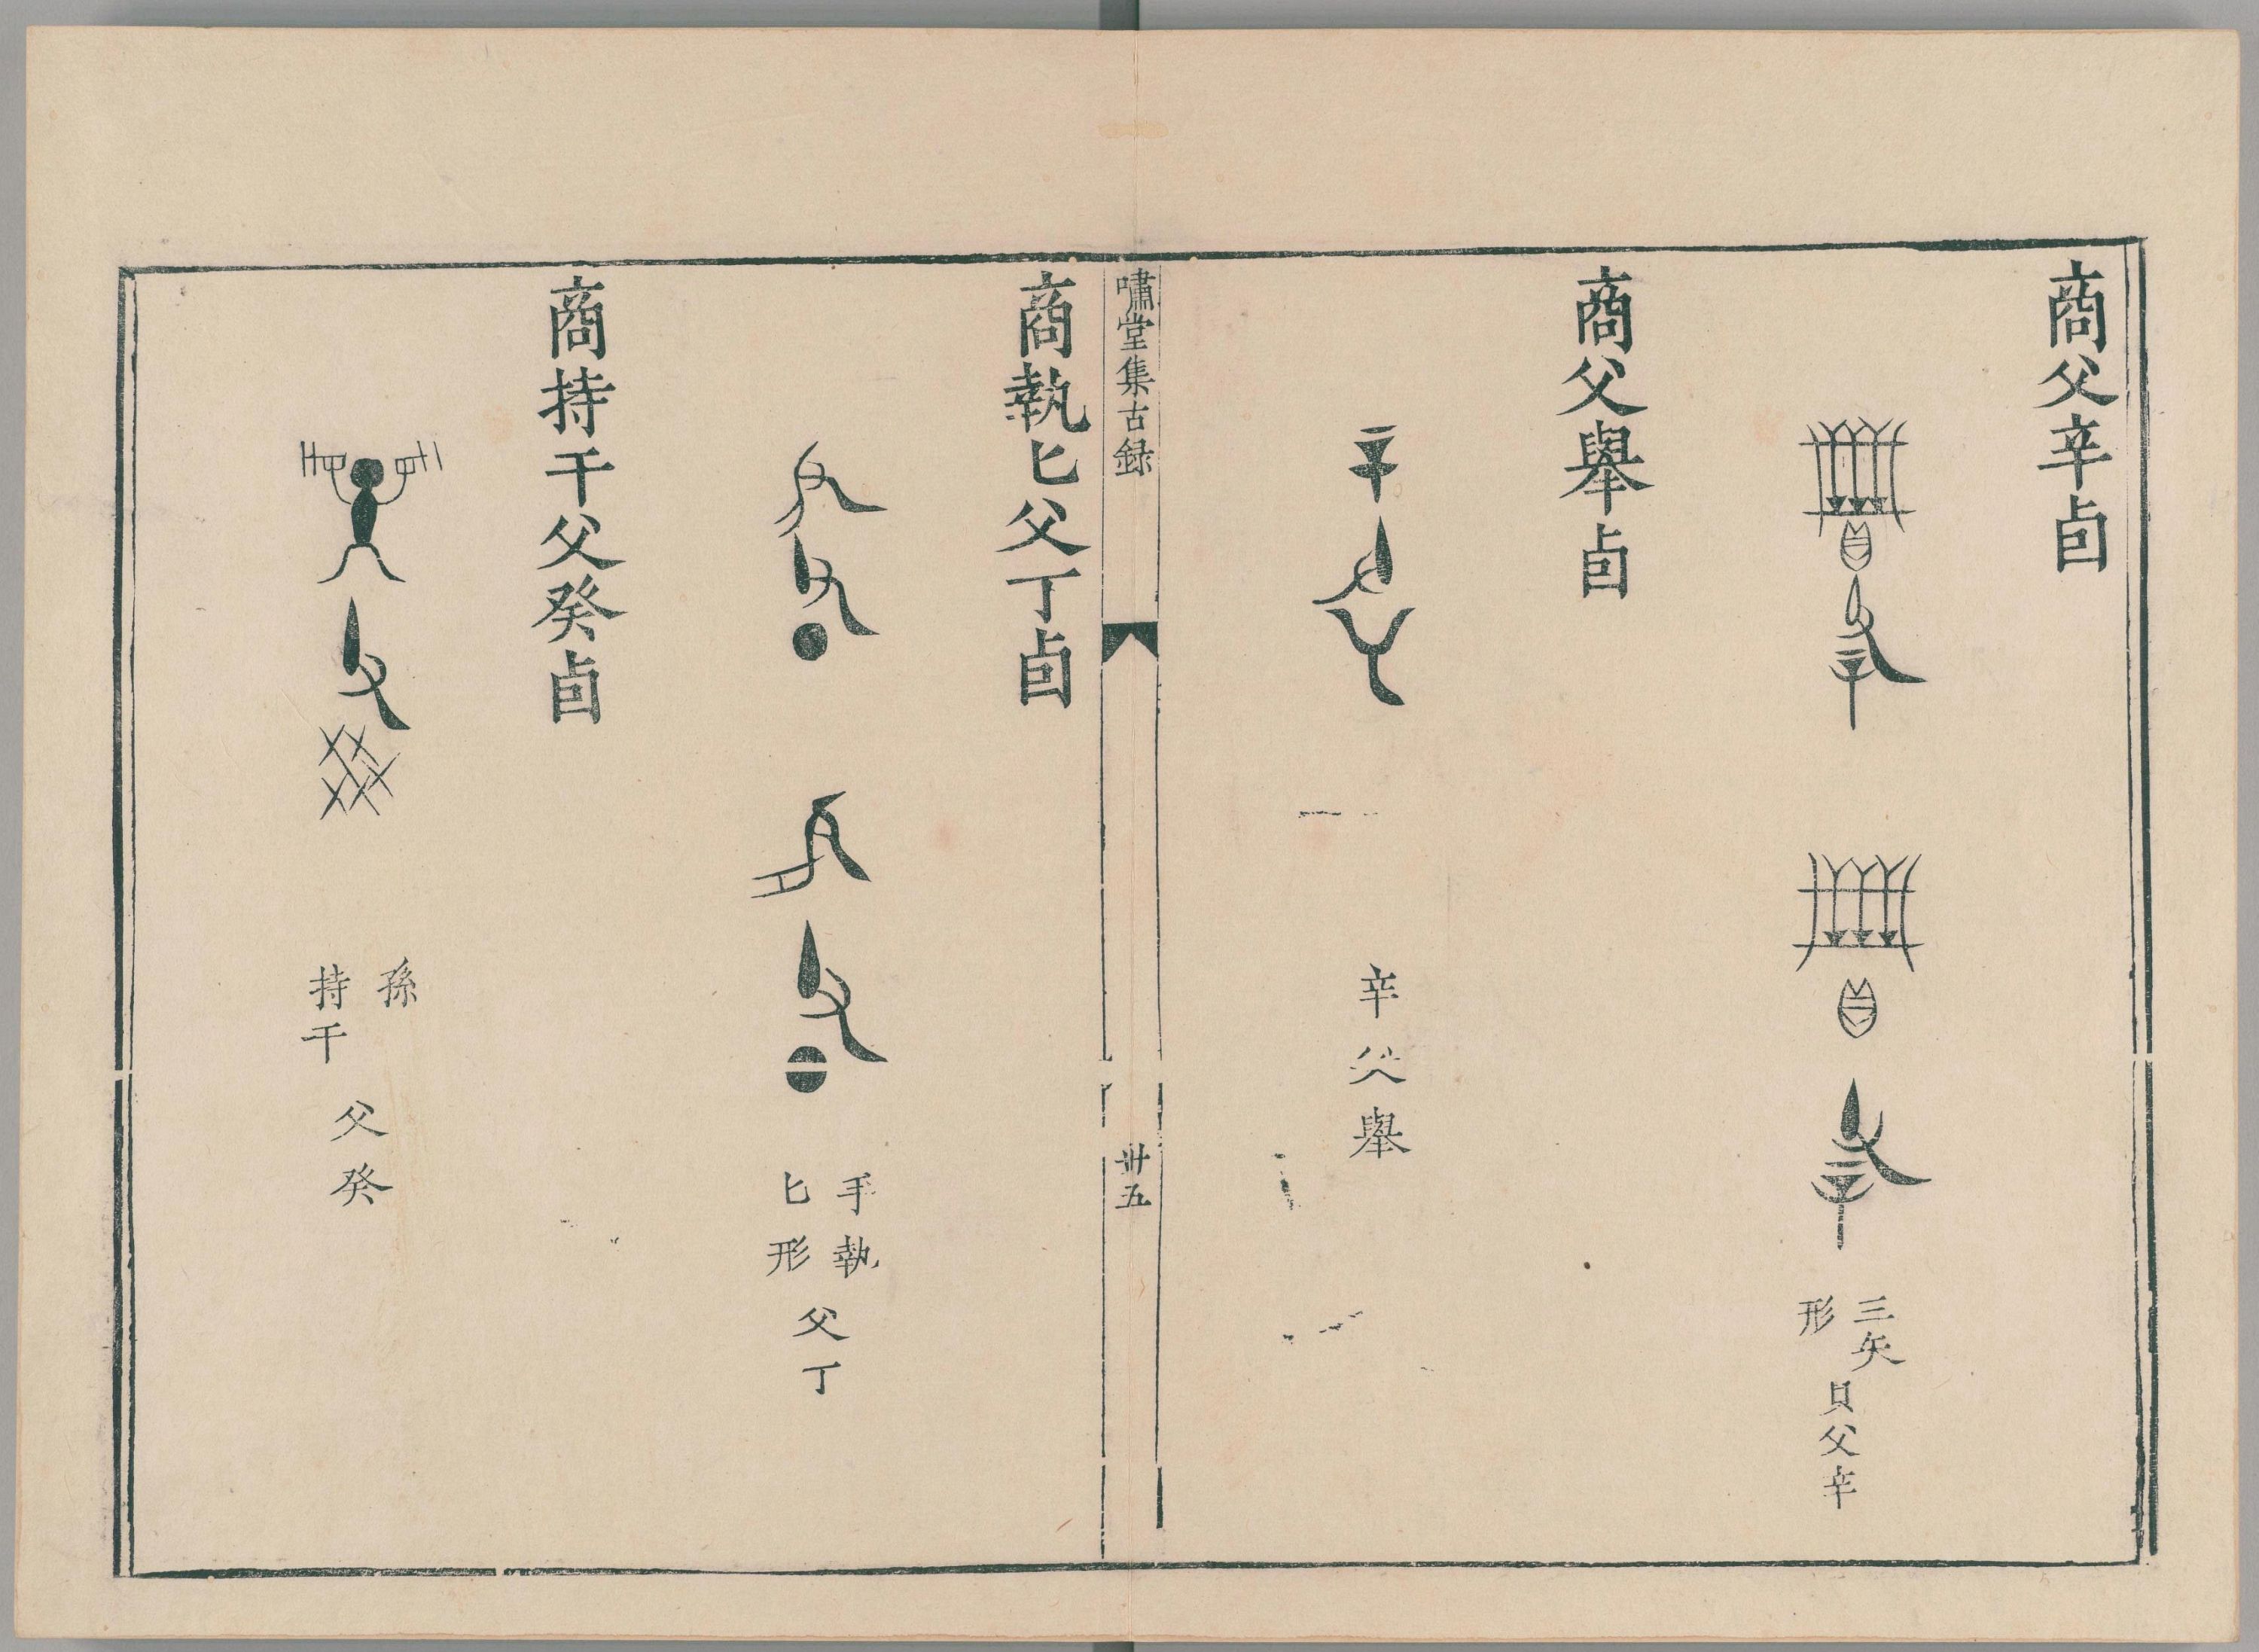 商父辛卣
三矢
形
貝父辛
商父舉卣
辛父舉
嘯堂集古録
卅五
商執匕父丁卣
手執
匕形
父丁
商持干父癸卣
孫
持干
父癸